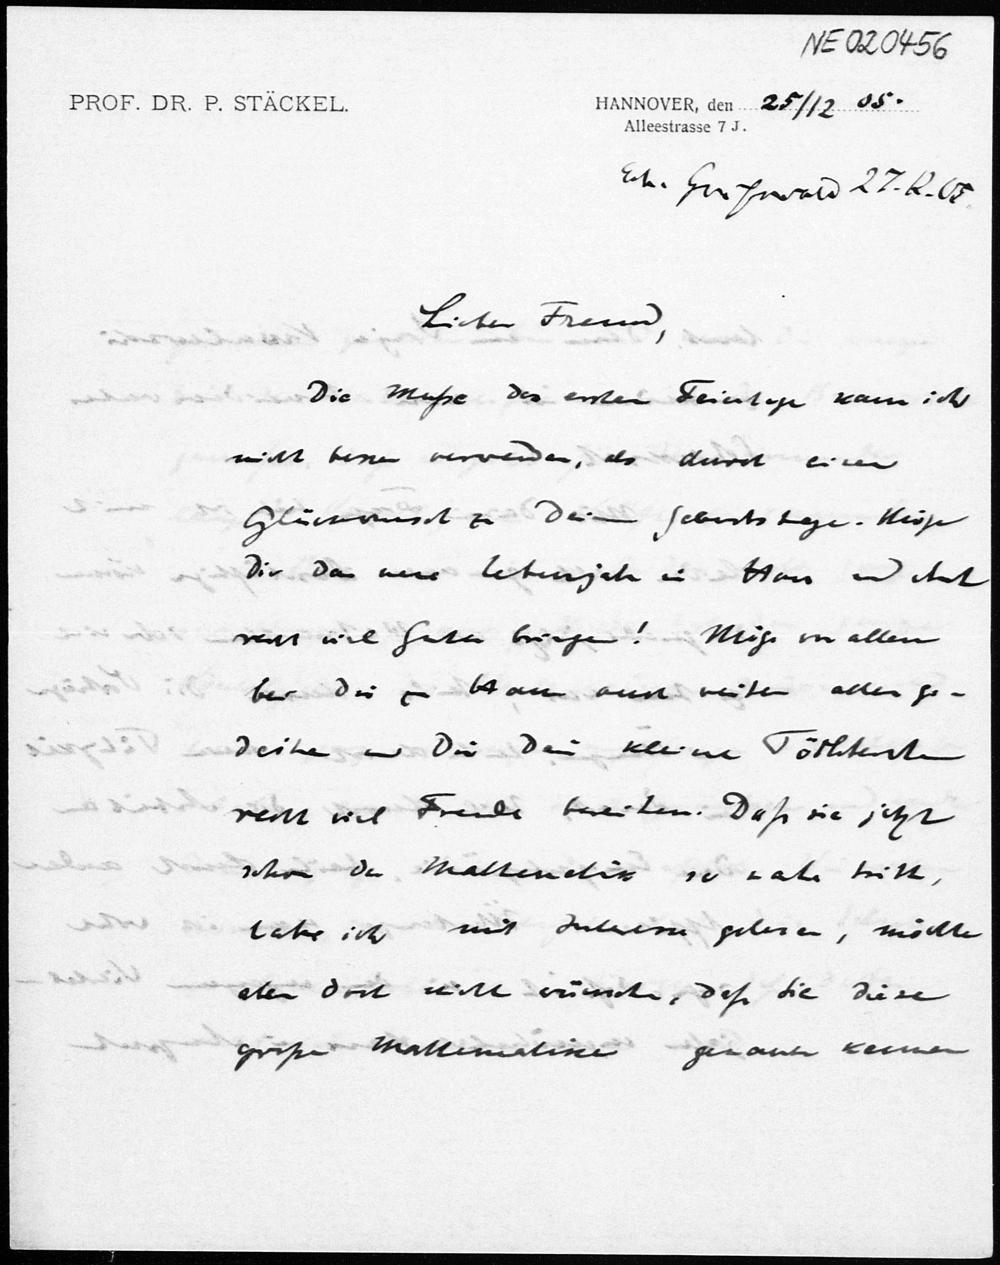 NE020456
PROF. DR. P. STÄCKEL.
HANNOVER, den 25/12 05.
Alleestrasse 7 J.
Erh. Greifswald 27.12.05
Lieber Freund,
Die Muße des ersten Feiertags kann ich
nicht besser verwenden, als durch einen
Glückwunsch zu Deinem Geburtstage. Möge
Dir das neue Lebensjahr in Haus und Amt
recht viel Gutes bringen! Möge vor allem
bei Dir zu Haus auch weiter alles ge-
deihen und Dir Dein kleines Töchterchen
recht viel Freude bereiten. Daß sie jetzt
schon der Mathematik so nahe tritt,
habe ich mit Interesse gelesen, möchte
aber doch nicht wünschen, daß sie diese
große Mathematiker genauer kennen